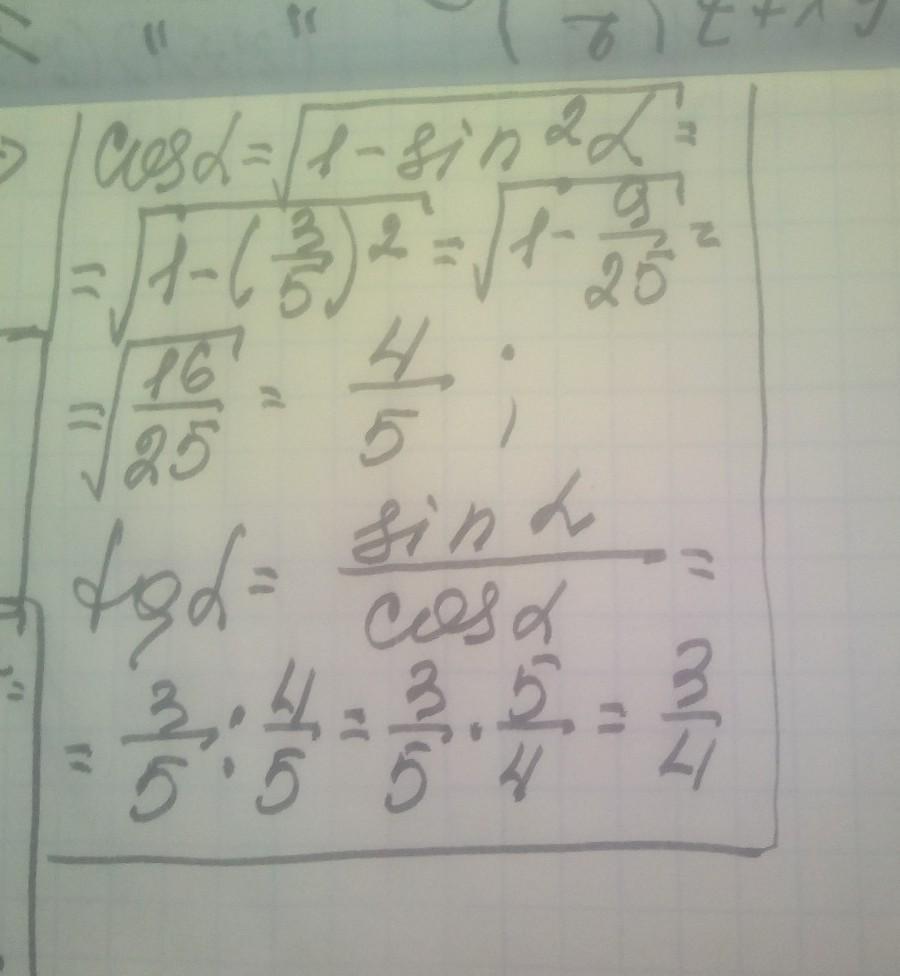 cos α = √(1 - sin²α) =
= √(1 - (3/5)²) = √(1 - 9/25) =
= √(16/25) = 4/5 ;
tg α = sin α / cos α =
= 3/5 : 4/5 = 3/5 · 5/4 = 3/4